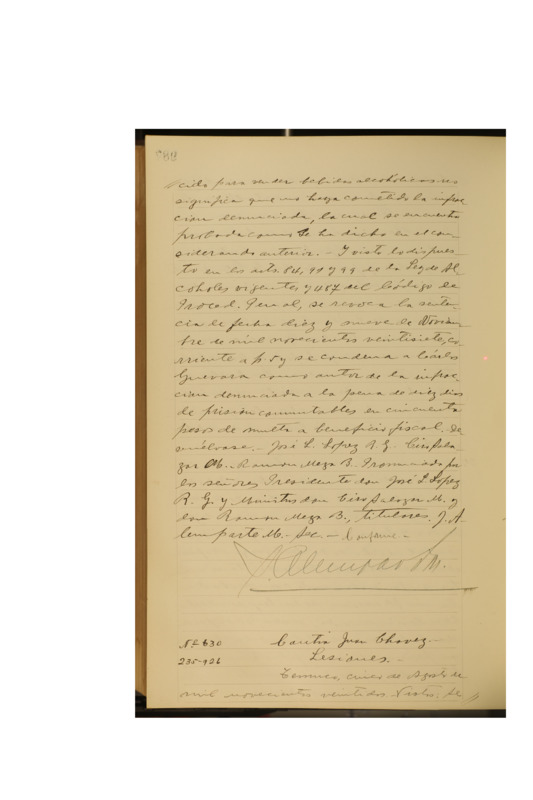 cido para vender bebidas alcohólicas no
significa que no haya cometido la infrac-
cion denunciada, la cual se encuentra
probada como se ha dicho en el con
siderando anterior. - Y visto lo dispues-
to en los arts. 84, 91 y 99 de la Ley de Al
coholes vigentes y 487 del Código de
Proced. Penal, se revoca la senten-
cia de fecha diez y nueve de Noviem
bre de mil novecientos veintisiete, co-
rriente a f. 5 y se condena a Carlos
Guevara como autor de la infrac-
cion denunciada a la pena de diez dias
de prision conmutables en cincuenta
pesos de multa a beneficio fiscal. De
vuélvase. - José L. Lopez R. G. Ciro Sala-
zar M. - Ramon Meza B. Pronunciada por
los señores Presidente don José L. Lopez
R. G. y Ministros don Ciro Salazar M. y
don Ramon Meza B., titulares. J. A
lemparte M. - Sec. - Conforme -
Nº 630
Contra Juan Chavez. -
235-926
Lesiones. -
Temuco, cinco de Agosto de
mil novecientos veintidos. Vistos. Se